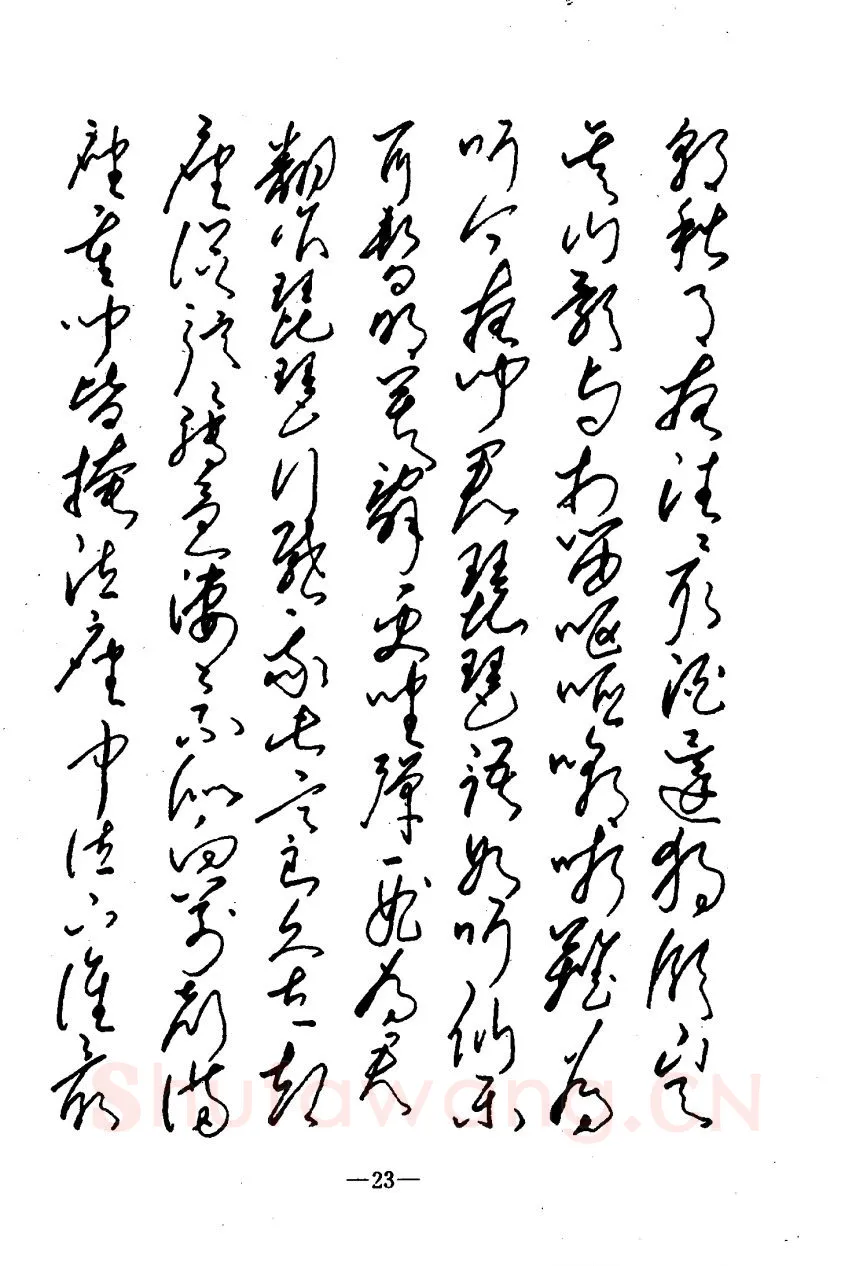 朝秋月夜往往取酒還独傾豈
無山歌与村笛嘔啞嘲哳難为
听今夜闻君琵琶語如听仙乐
耳暫明莫辞更坐彈一曲为君
翻作琵琶行感我此言良久立却
座促弦弦轉急凄凄不似向前声满
座重闻皆掩泣座中泣下谁最
—23—
Shufawang.CN